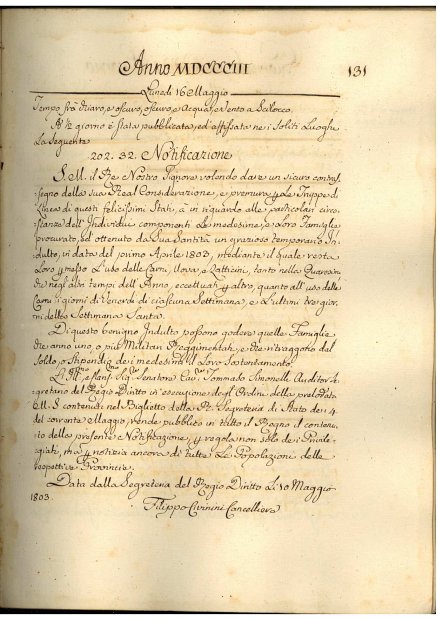 Anno MDCCCIII 131
Lunedì 16 Maggio
Tempo frà chiaro, e oscuro, oscuro, e Acqua, e Vento a Scilocco.
A ½ giorno è stata pubblicata, ed affissata nei Soliti Luoghi
La Seguente
202. 32. Notificazione
S. M. il Re Nostro Signore volendo dare un sicuro contras,
segno della sua Real Considerazione, e premura p le Truppe di
Linea di questi felicissimi Stati, à in riguardo alle particolari circo,
stanze dell'Individui componenti Le medesime, e Loro Famiglie
procurato, ed ottenuto da Sua Santità un grazioso temporario In,
dulto, in data del primo Aprile 1803, mediante il quale resta
Loro p messo L'uso delle Carni, Uova, e Latticinj, tanto nella Quaresima
che negl'altri tempi dell'Anno, eccettuati p altro, quanto all'uso delle
Carni i giorni di Venerdì di ciascuna Settimana, e L'ultimi tre gior,
ni della Settimana Santa.
Di questo benigno Indulto possono godere quelle Famiglie
che anno uno, o più Militari Reggimentati, e che ritraggono dal
Soldo, o Stipendio dei medesimi il Loro Sostentamento.
L'Ill.mo, e Clar. Sig. Senatore Cav. Tommaso Simonelli Auditor S,
gretario del Regio Diritto in esecuzione degl'Ordini della prelodata
M. S. contenuti nel Biglietto della R. Segreteria di Stato dei 4.
del corrente Maggio, rende pubblico in tutto il Regno il contenu,
to della presente Notificazione, p regola non solo dei Privile,
giati, mà p notizia ancora di tutte Le Popolazioni delle
respettive Provincie.
Data dalla Segreteria del Regio Diritto Li 10 Maggio
1803.
Filippo Civinini Cancelliere